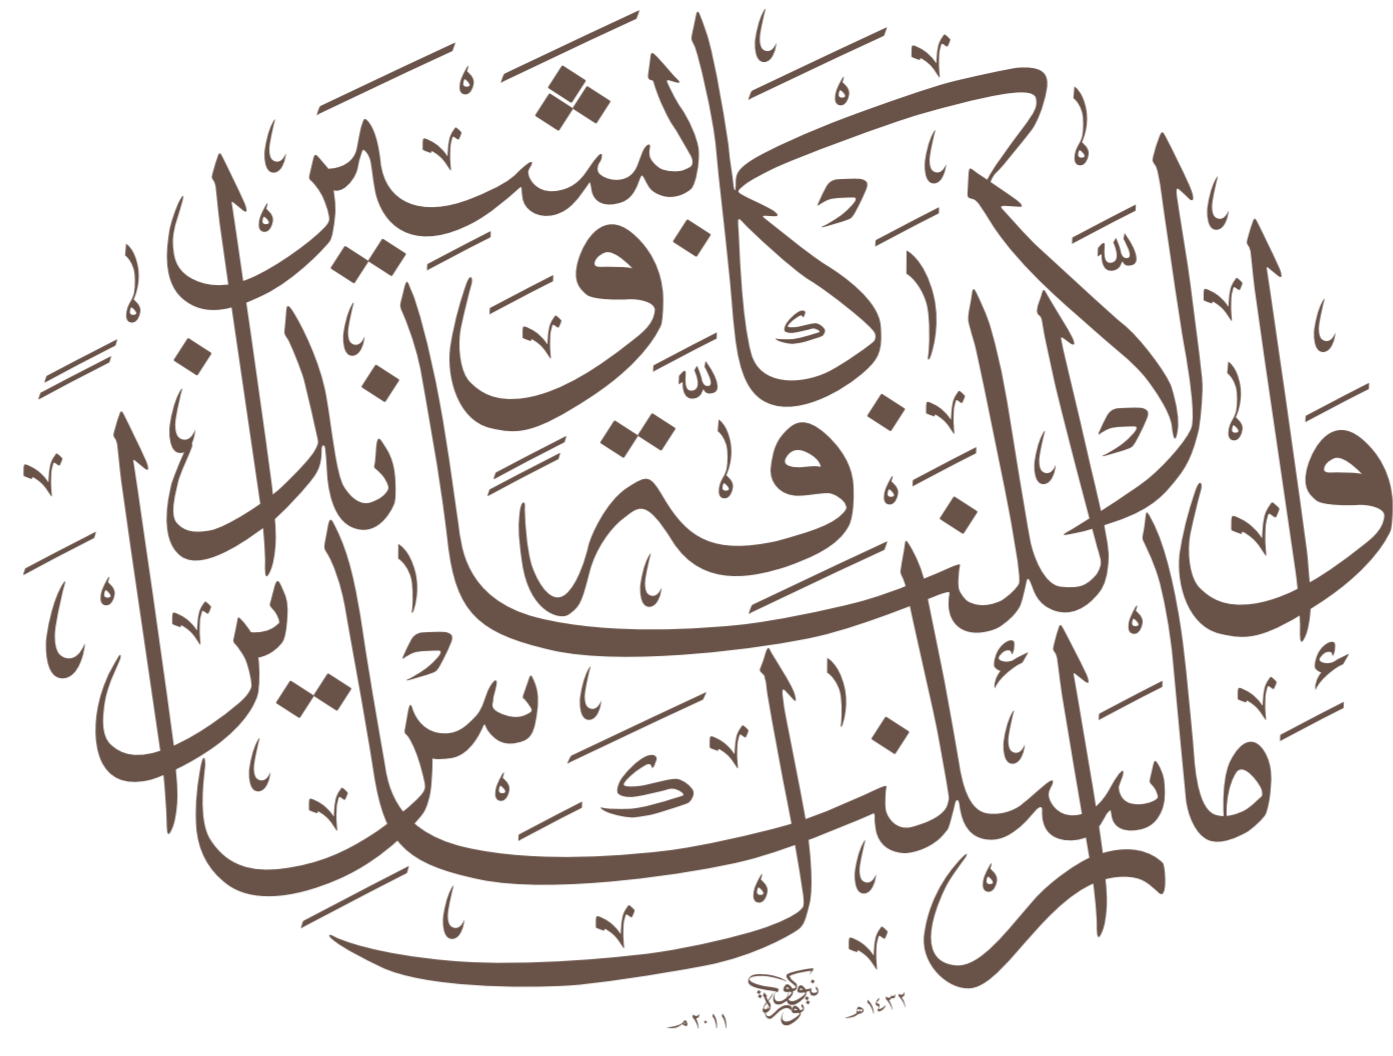 وَمَا أَرْسَلْنَاكَ إِلَّا كَافَّةً لِلنَّاسِ بَشِيرًا وَنَذِيرًا
١٤٣٢هـ ٢٠١١م